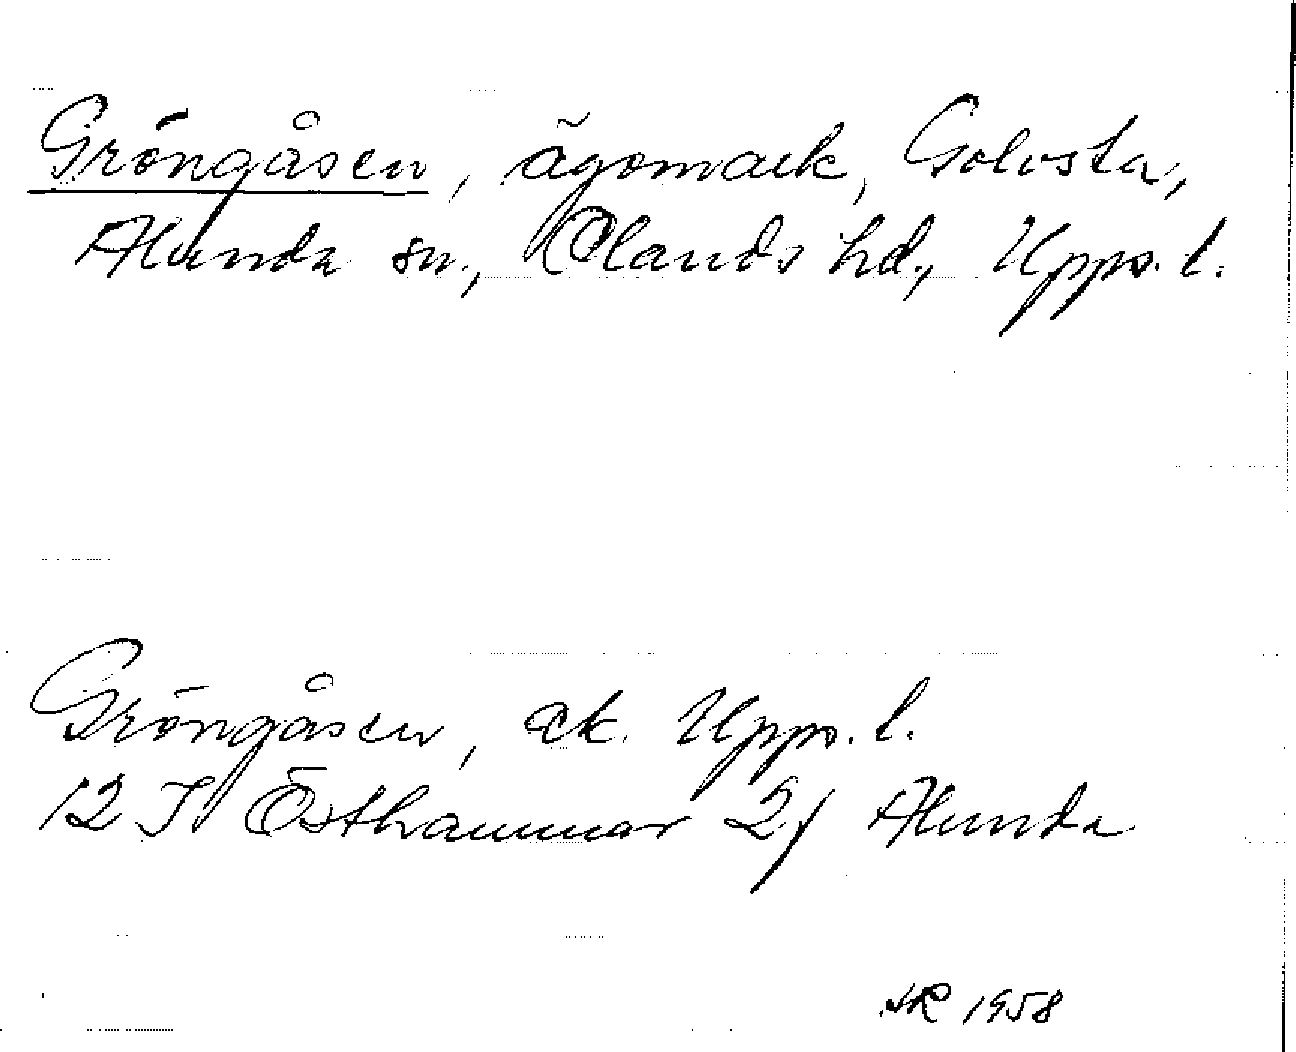 Gröngåsen, ägomark, Golvsta,
Alunda sn., Olands hd., Upps. l.
Gröngåsen, ek. Upps. l.
12 I Östhammar 2f Alunda
1958